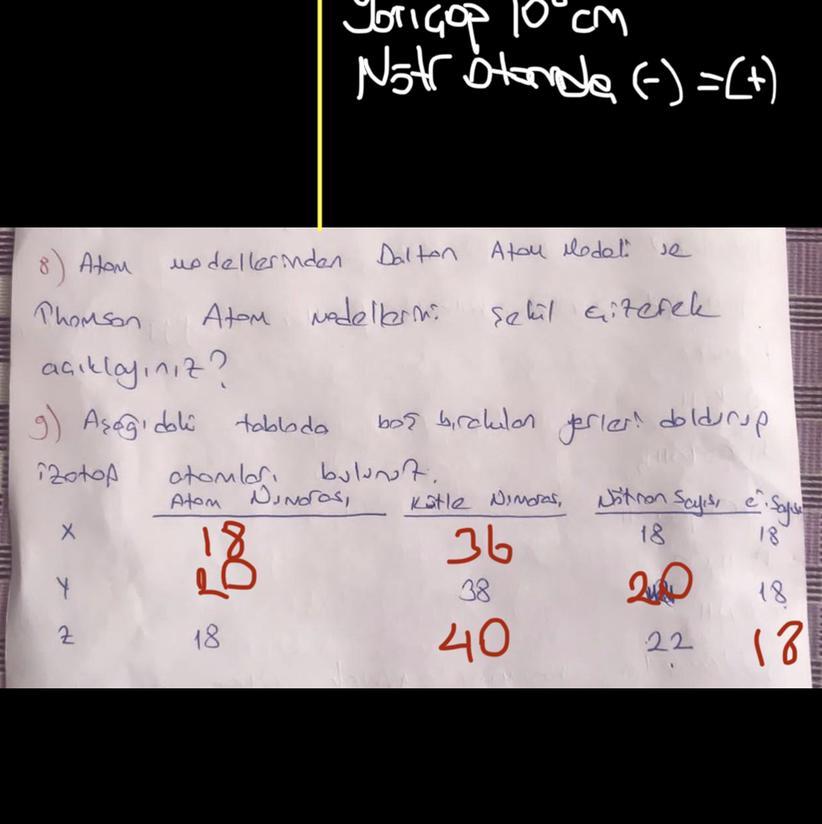 Yarıçap 10 cm
Nötr Atomda (-) = (+)
8) Atom modellerinden Dalton Atom Modeli ve
Thomson Atom modellerini şekil çizerek
açıklayınız?
9) Aşağıdaki tabloda boş bırakılan yerleri doldurup
izotop atomları bulunuz.
Atom Numarası Kütle Numarası Nötron Sayısı e⁻ Sayısı
X 18 36 18 18
Y 20 38 20 18
Z 18 40 22 18